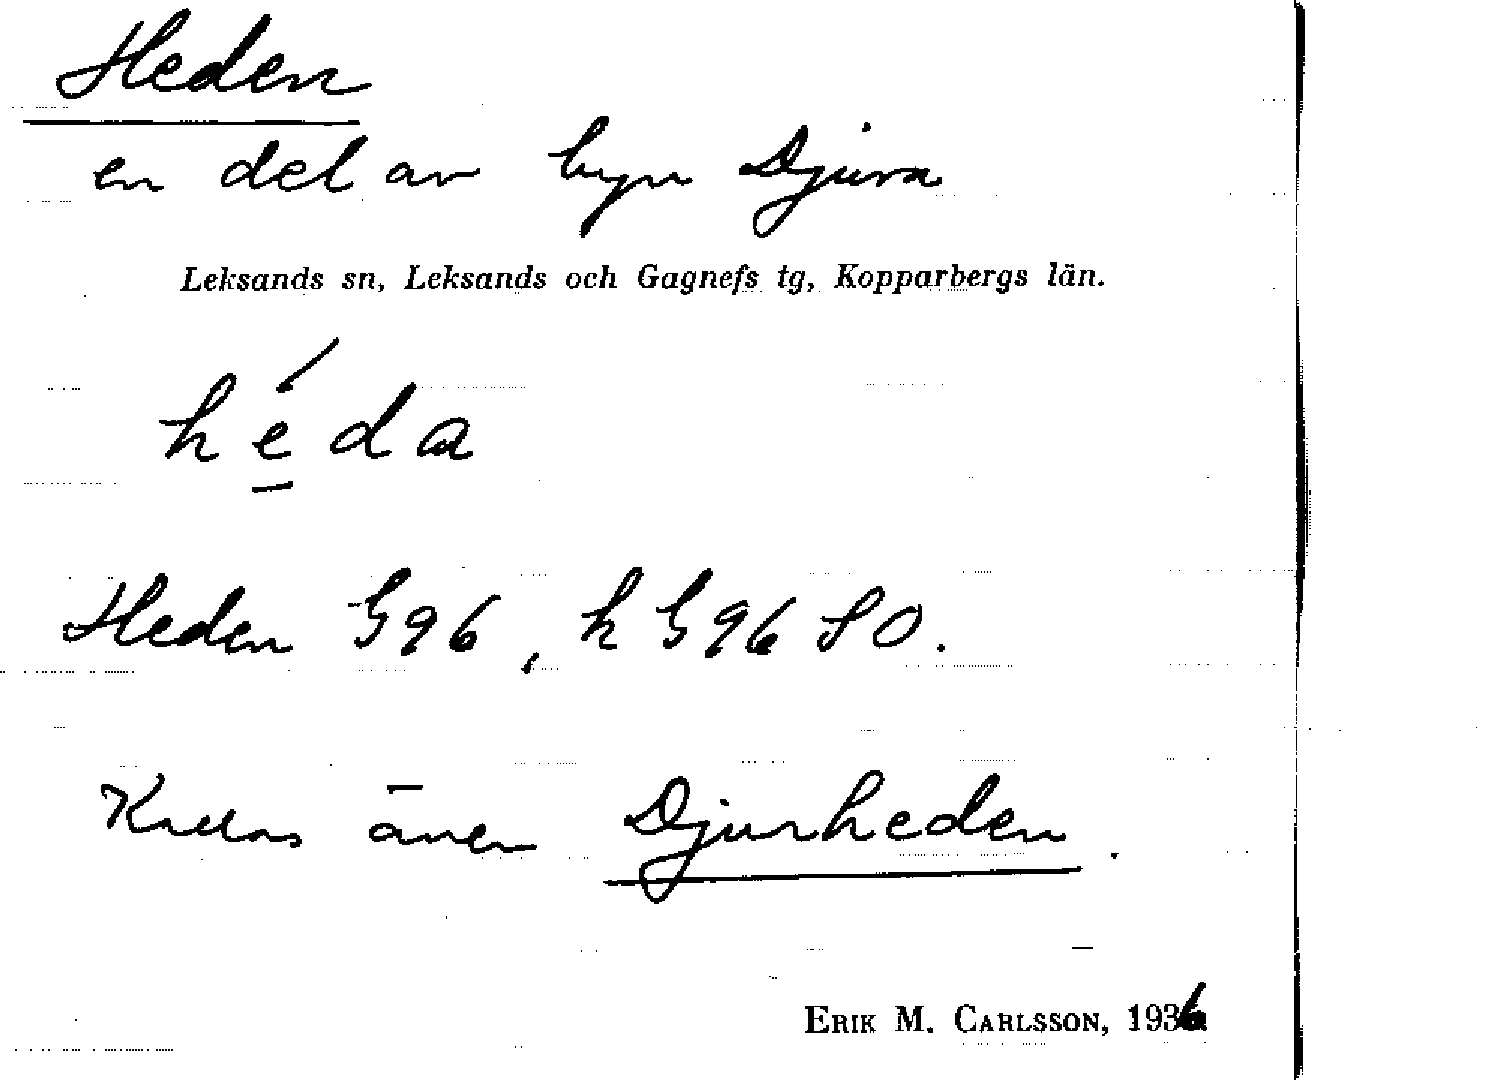 Heden
en del av byn Djura
Leksands sn, Leksands och Gagnefs tg, Kopparbergs län.
héda
Heden G96, h G96 SO.
Kallas även Djurheden.
ERIK M. CARLSSON, 1936